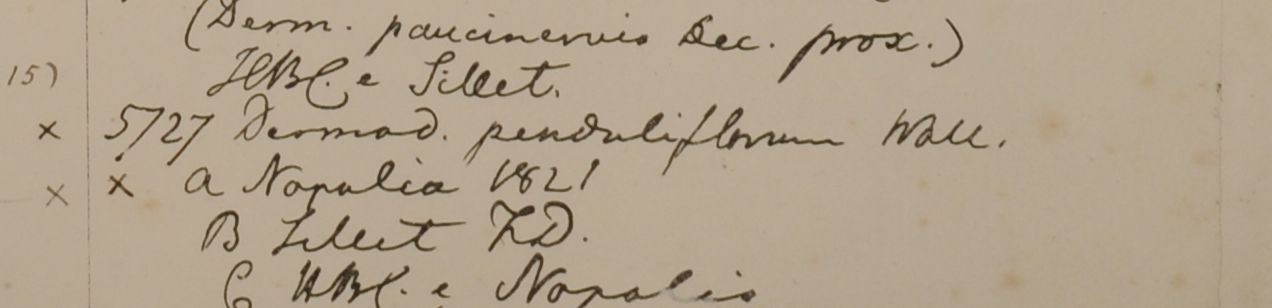 (Derm. paucinervis Dec. prox.)
15) HBC. e Sillet.
x 5727 Dermod. penduliflorum Wall.
x x a Napalia 1821
B Sillet F.D.
C HBC. e Napalia